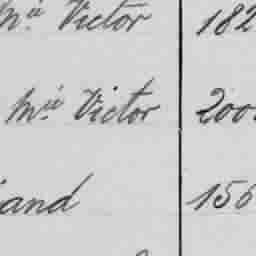 Mie Victor 182
Mie Victor 200
and 156